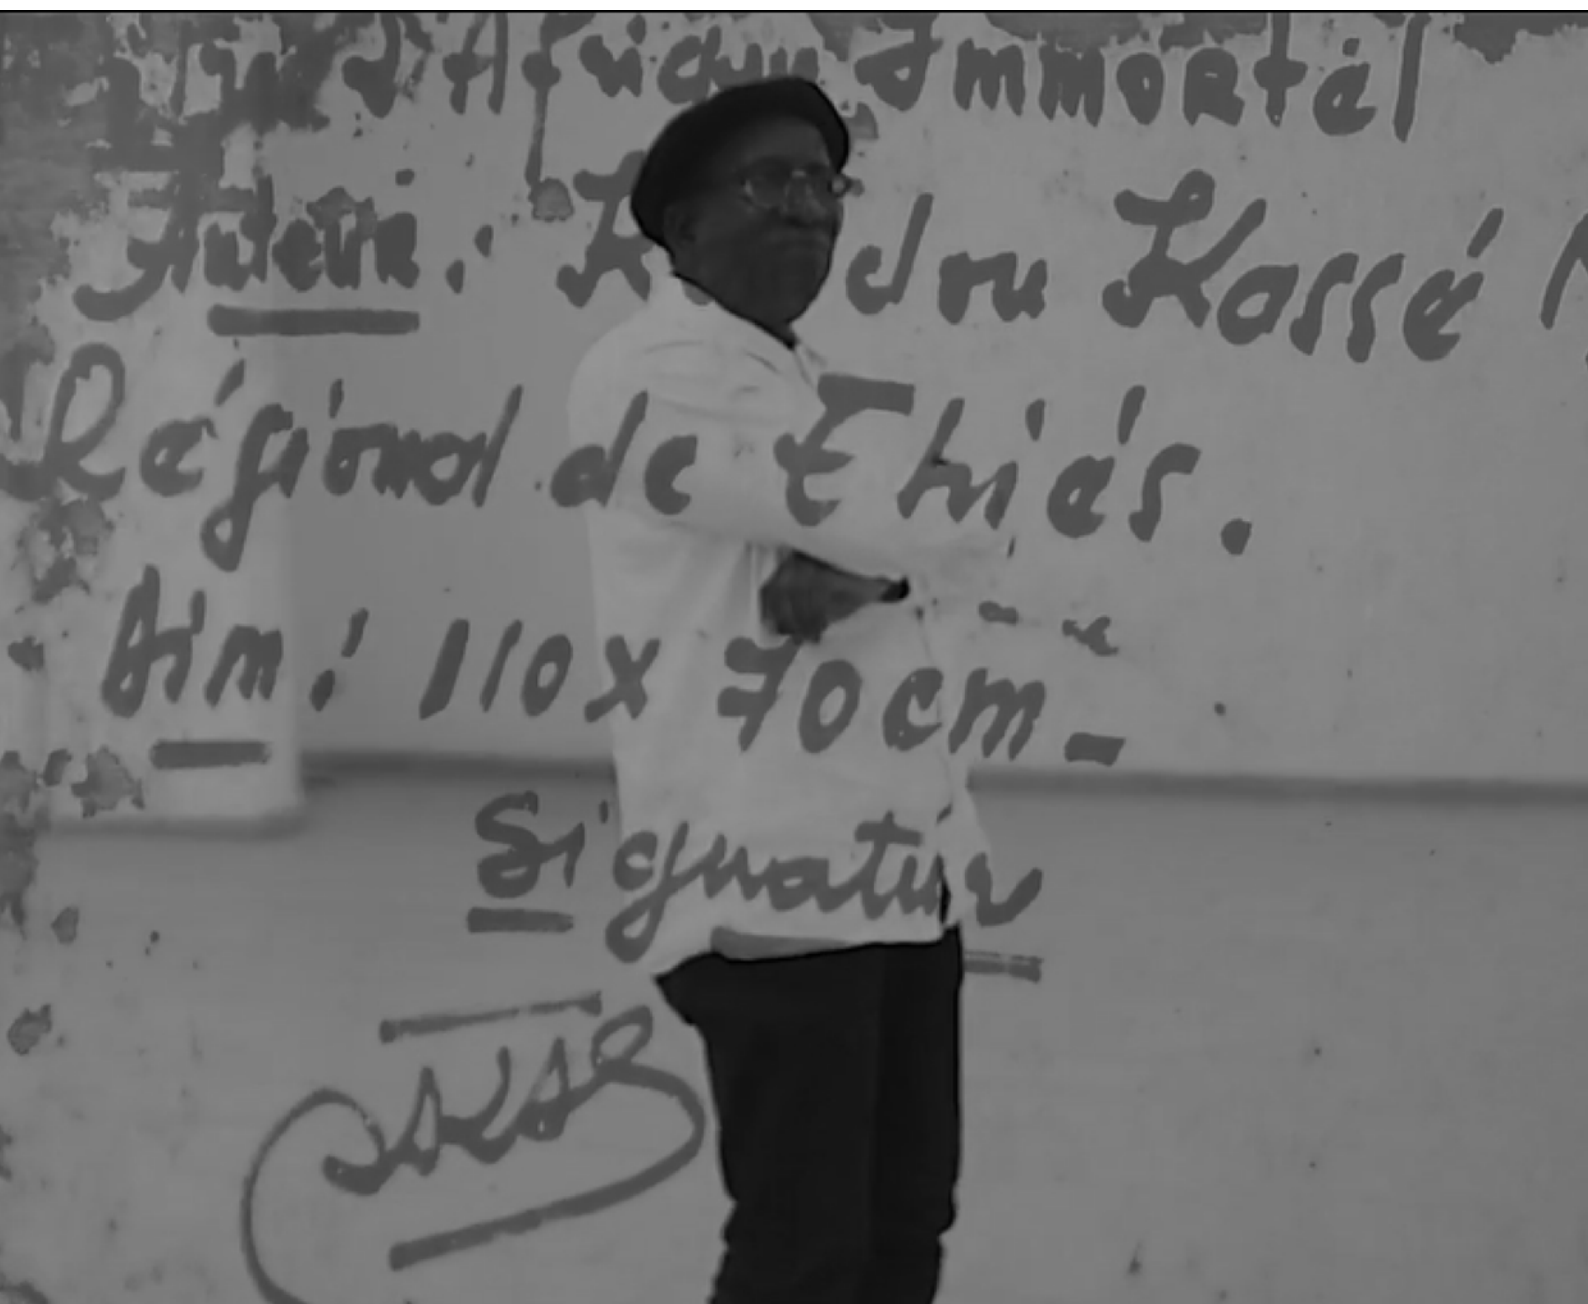 d'Afrique Immortel
Auteur: dou Kassé
Régional de Thiés.
Dim: 110x 70cm-
Signature